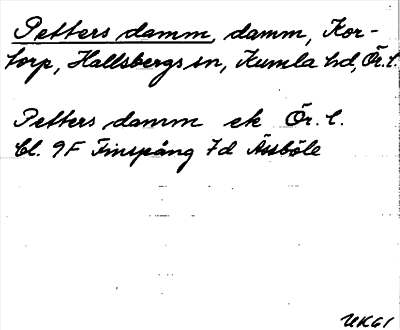 Petters damm, damm, Kor-
torp, Hallsbergs sn, Kumla hd, Ör. l.
Petters damm ek Ör. l.
Bl. 9F Finspång 7d Åsbole
UKG1